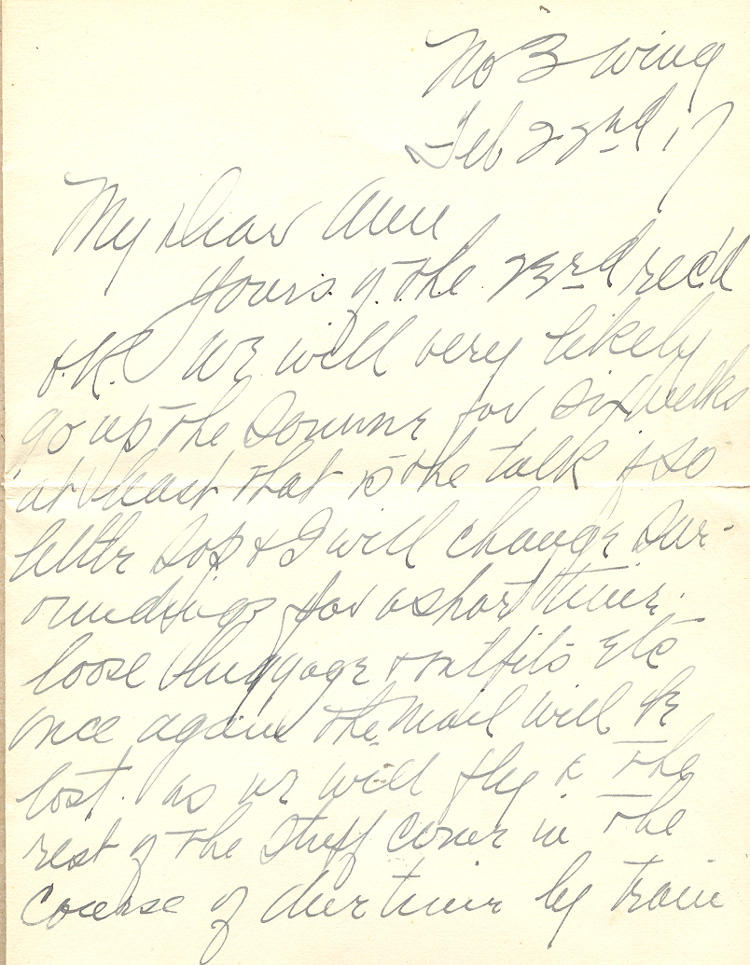 No 3 Wing
Feb 22nd 17
My Dear Anne
Yours of the 23rd rec'd
O.K. We will very likely
go up the Somme for six weeks
at least that is the talk & so
little Sop & I will change sur-
oundings for a short time.
loose luggage & outfits Etc
once again the Mail will be
lost. as we will fly & the
rest of the Stuff comes in the
course of due time by train